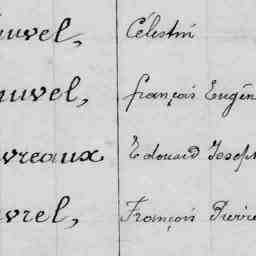 uvel, Célestin
uvel, françois Eugèn
vreaux Edouard Joseph
vrel, François Pierre